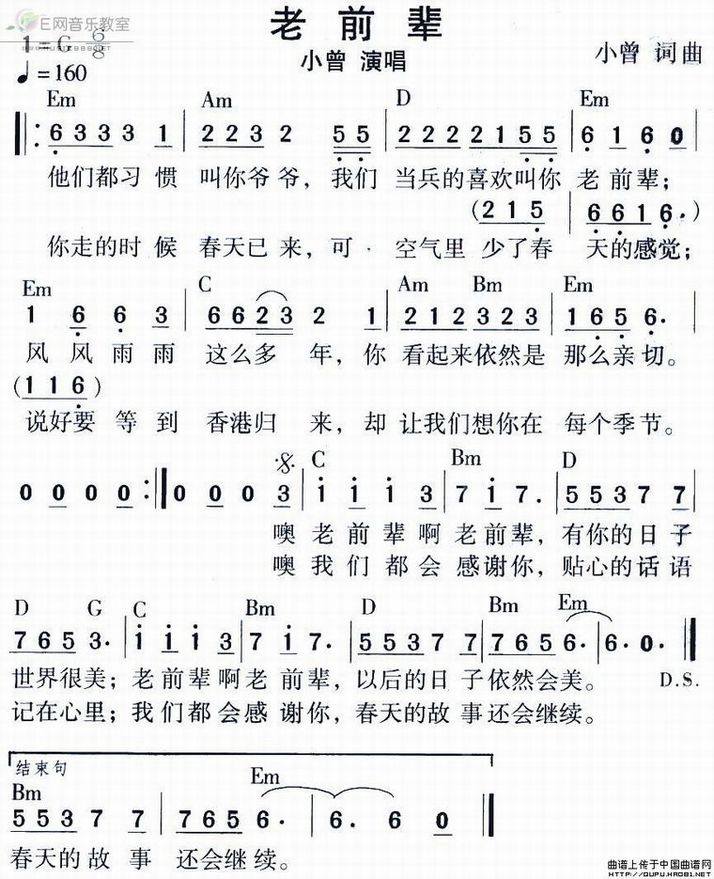 E网音乐教室
老前辈
1=G 6/8
小曾 演唱
小曾 词曲
♩=160
Em Am D Em
6 3 3 3 1 | 2 2 3 2 5 5 | 2 2 2 2 1 5 5 | 6 1 6 0
他们都习 惯 叫你爷爷，我们 当兵的喜欢叫你 老前辈；
(2 1 5 | 6 6 1 6 .)
你走的时 候 春天已 来，可 · 空气里 少了春 天的感觉；
Em C Am Bm Em
1 6 6 3 | 6 6 2 3 2 1 | 2 1 2 3 2 3 | 1 6 5 6 .
风 风雨雨 这么多 年，你 看起来依然是 那么亲切。
(1 1 6)
说好要 等 到 香港归 来，却 让我们想你在 每个季节。
C Bm D
0 0 0 0 :‖ 0 0 0 3 | i i i 3 | 7 i 7 . | 5 5 3 7 7
噢 老前辈啊 老前辈，有你的日 子
噢 我们 都会 感谢你，贴心的话语
D G C Bm D Bm Em
7 6 5 3 . | i i i 3 | 7 i 7 . | 5 5 3 7 7 | 7 6 5 6 . | 6 . 0 . :‖
世界很美；老前辈啊老 前辈，以后的日 子依然会美。 D.S.
记在心里；我们都会感 谢你，春天的故 事还会继续。
结束句
Bm Em
5 5 3 7 7 | 7 6 5 6 . | 6 . 6 0 ‖
春天的故 事 还会继续。
曲谱上传于中国曲谱网
HTTP://QUPU.HAO81.NET